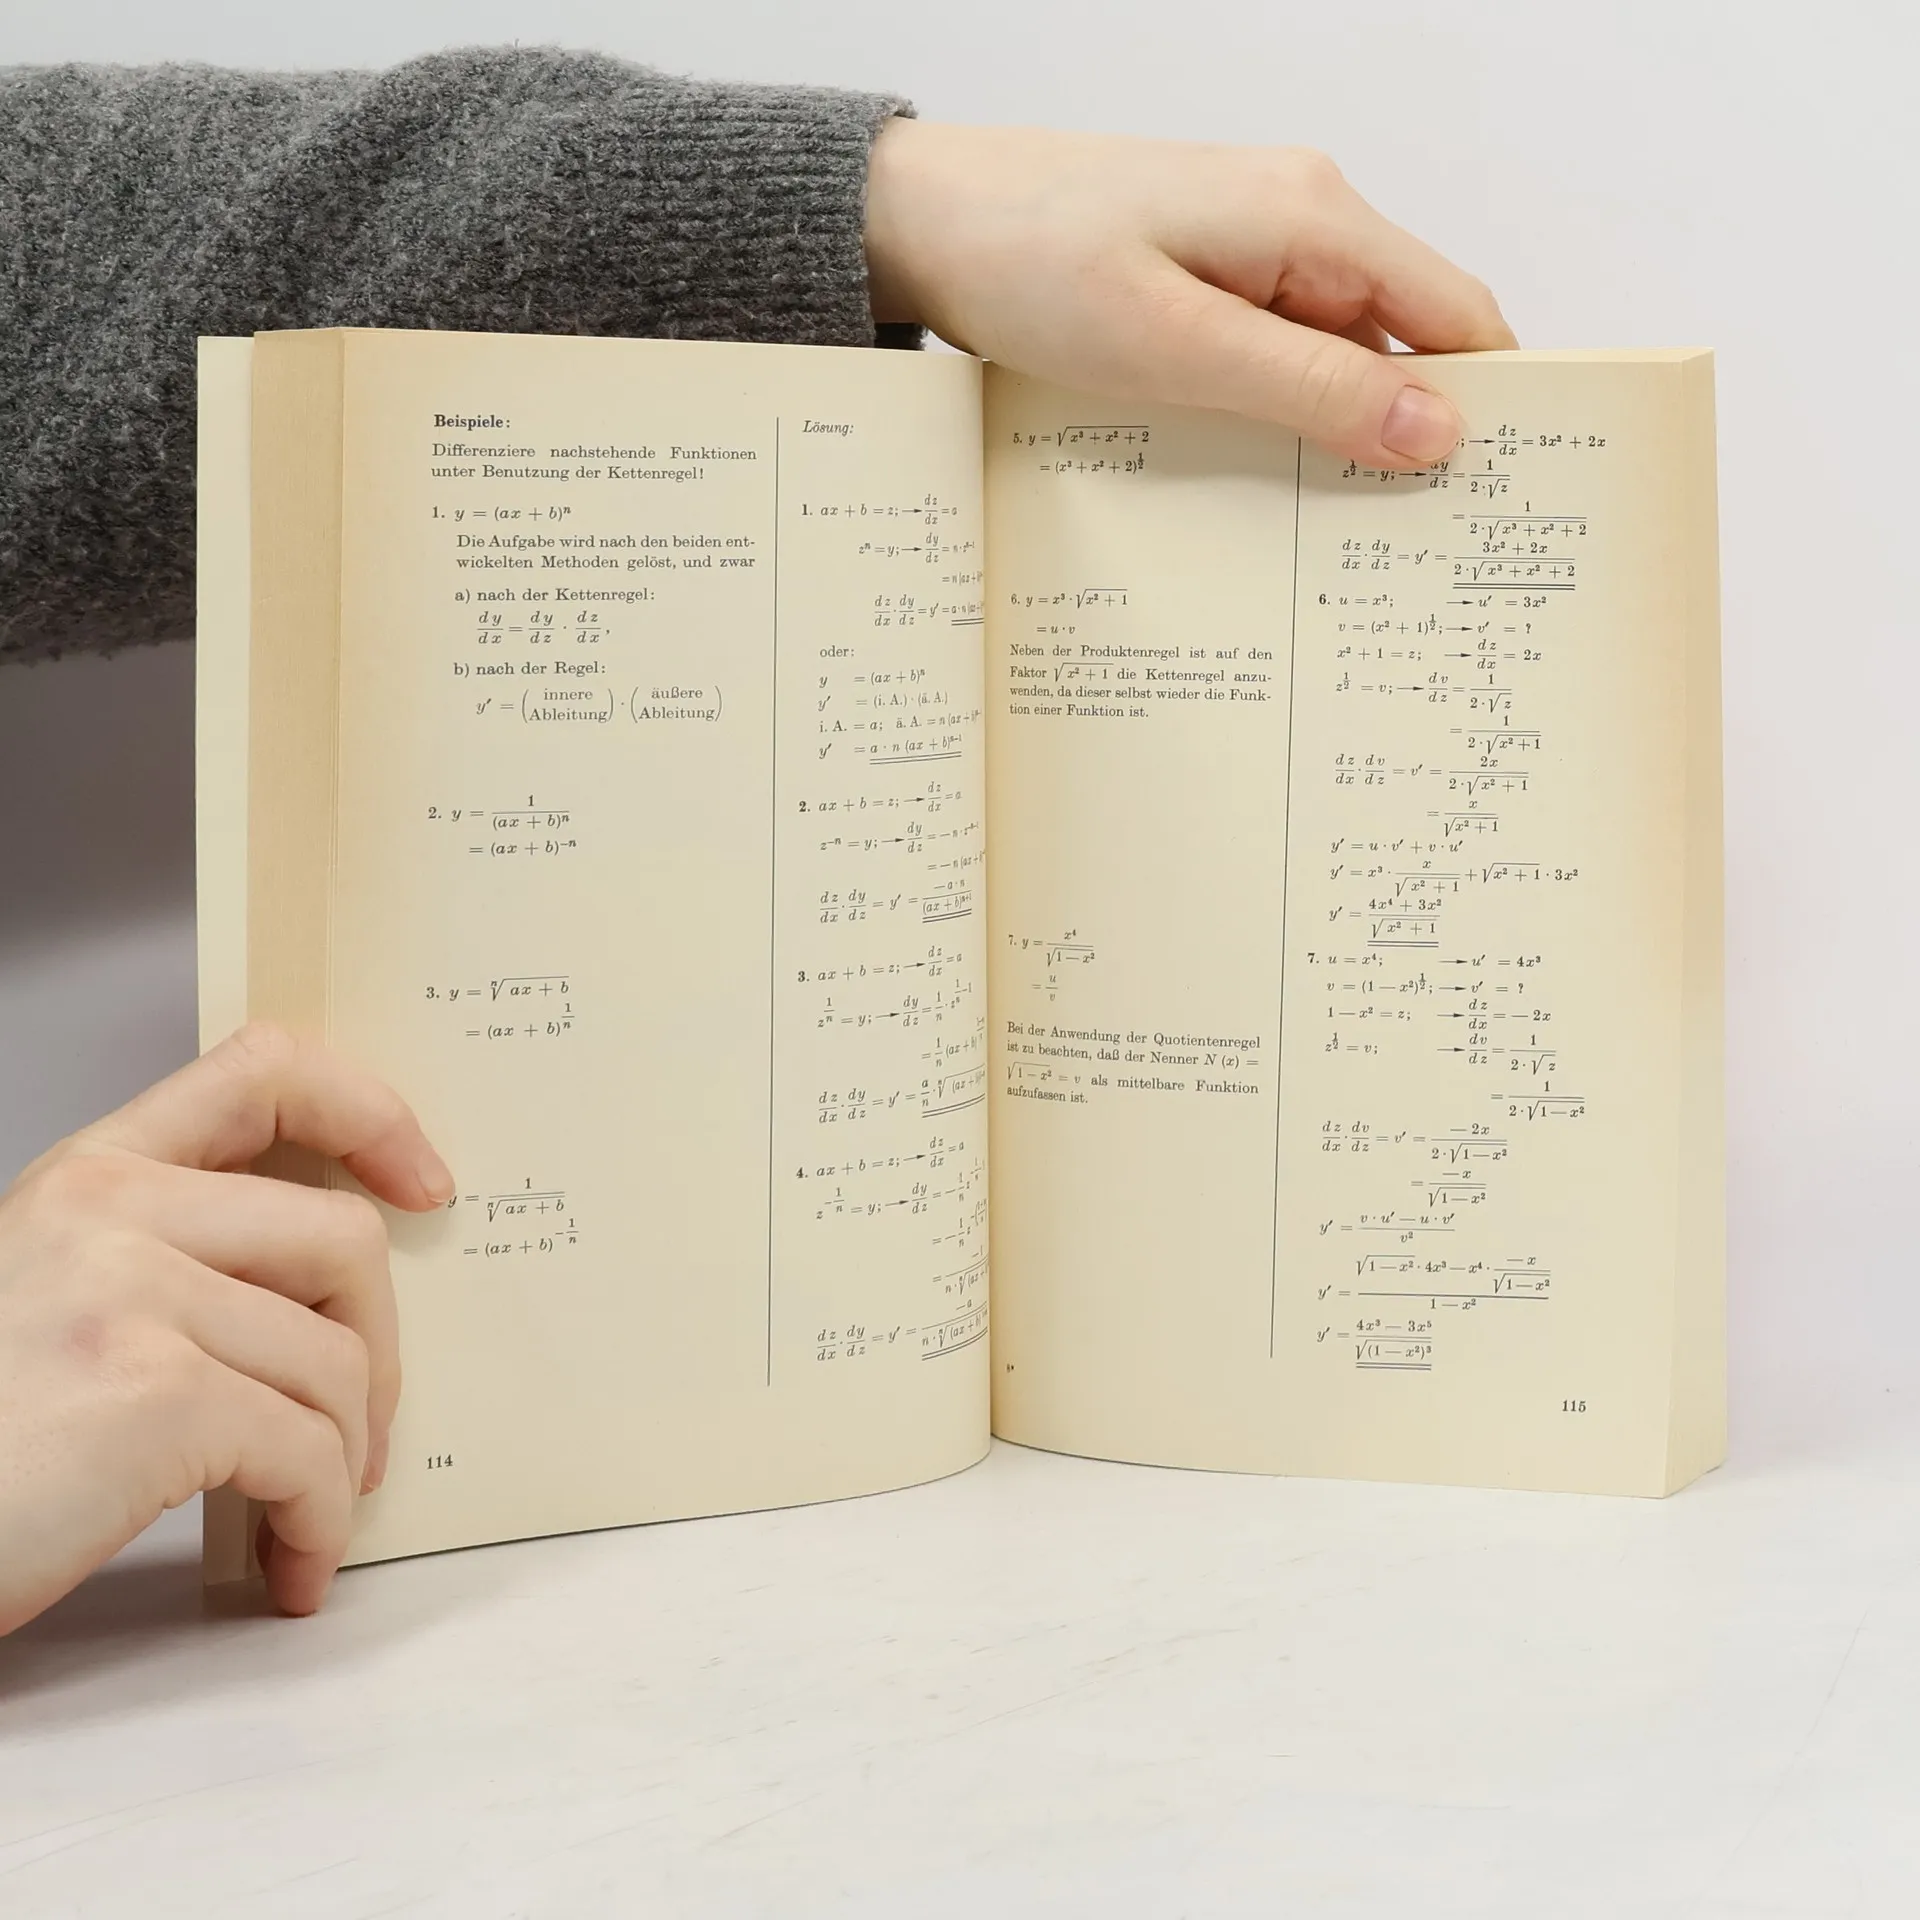 Beispiele:
Differenziere nachstehende Funktionen
unter Benutzung der Kettenregel!
1. y = (ax + b)ⁿ
Die Aufgabe wird nach den beiden ent-
wickelten Methoden gelöst, und zwar
a) nach der Kettenregel:
dy/dx = dy/dz · dz/dx,
b) nach der Regel:
y′ = (innere Ableitung) · (äußere Ableitung)
2. y = 1/(ax + b)ⁿ
= (ax + b)⁻ⁿ
3. y = ⁿ√(ax + b)
= (ax + b)^(1/n)
y = 1/ⁿ√(ax + b)
= (ax + b)^(−1/n)
114
Lösung:
1. ax + b = z; → dz/dx = a
zⁿ = y; → dy/dz = n · zⁿ⁻¹
= n (ax + b)
dz/dx · dy/dz = y′ = a · n (ax + b)
oder:
y = (ax + b)ⁿ
y′ = (i. A.) · (ä. A.)
i. A. = a; ä. A. = n (ax + b)ⁿ⁻¹
y′ = a · n (ax + b)ⁿ⁻¹
2. ax + b = z; → dz/dx = a
z⁻ⁿ = y; → dy/dz = − n · z⁻ⁿ⁻¹
= − n (ax + b)
dz/dx · dy/dz = y′ = −a · n/(ax + b)ⁿ⁺¹
3. ax + b = z; → dz/dx = a
z^(1/n) = y; → dy/dz = 1/n · z^(1/n −1)
= 1/n (ax + b)
dz/dx · dy/dz = y′ = a/n · ⁿ√(ax + b)
4. ax + b = z; → dz/dx = a
z^(−1/n) = y; → dy/dz = − 1/n z
= − 1/n z
= −1/n · ⁿ√(ax + b)
dz/dx · dy/dz = y′ = −a/n · ⁿ√(ax + b)
5. y = √(x³ + x² + 2)
= (x³ + x² + 2)^(1/2)
6. y = x³ · √(x² + 1)
= u · v
Neben der Produktenregel ist auf den
Faktor √(x² + 1) die Kettenregel anzu-
wenden, da dieser selbst wieder die Funk-
tion einer Funktion ist.
7. y = x⁴/√(1 − x²)
= u/v
Bei der Anwendung der Quotientenregel
ist zu beachten, daß der Nenner N (x) =
√(1 − x²) = v als mittelbare Funktion
aufzufassen ist.
8*
; → dz/dx = 3x² + 2x
z^(1/2) = y; → dy/dz = 1/(2 · √z)
= 1/(2 · √(x³ + x² + 2))
dz/dx · dy/dz = y′ = (3x² + 2x)/(2 · √(x³ + x² + 2))
6. u = x³; → u′ = 3x²
v = (x² + 1)^(1/2); → v′ = ?
x² + 1 = z; → dz/dx = 2x
z^(1/2) = v; → dv/dz = 1/(2 · √z)
= 1/(2 · √(x² + 1))
dz/dx · dv/dz = v′ = 2x/(2 · √(x² + 1))
= x/√(x² + 1)
y′ = u · v′ + v · u′
y′ = x³ · x/√(x² + 1) + √(x² + 1) · 3x²
y′ = (4x⁴ + 3x²)/√(x² + 1)
7. u = x⁴; → u′ = 4x³
v = (1 − x²)^(1/2); → v′ = ?
1 − x² = z; → dz/dx = − 2x
z^(1/2) = v; → dv/dz = 1/(2 · √z)
= 1/(2 · √(1 − x²))
dz/dx · dv/dz = v′ = − 2x/(2 · √(1 − x²))
= −x/√(1 − x²)
y′ = (v · u′ − u · v′)/v²
y′ = (√(1 − x²) · 4x³ − x⁴ · −x/√(1 − x²))/(1 − x²)
y′ = (4x³ − 3x⁵)/√((1 − x²)³)
115